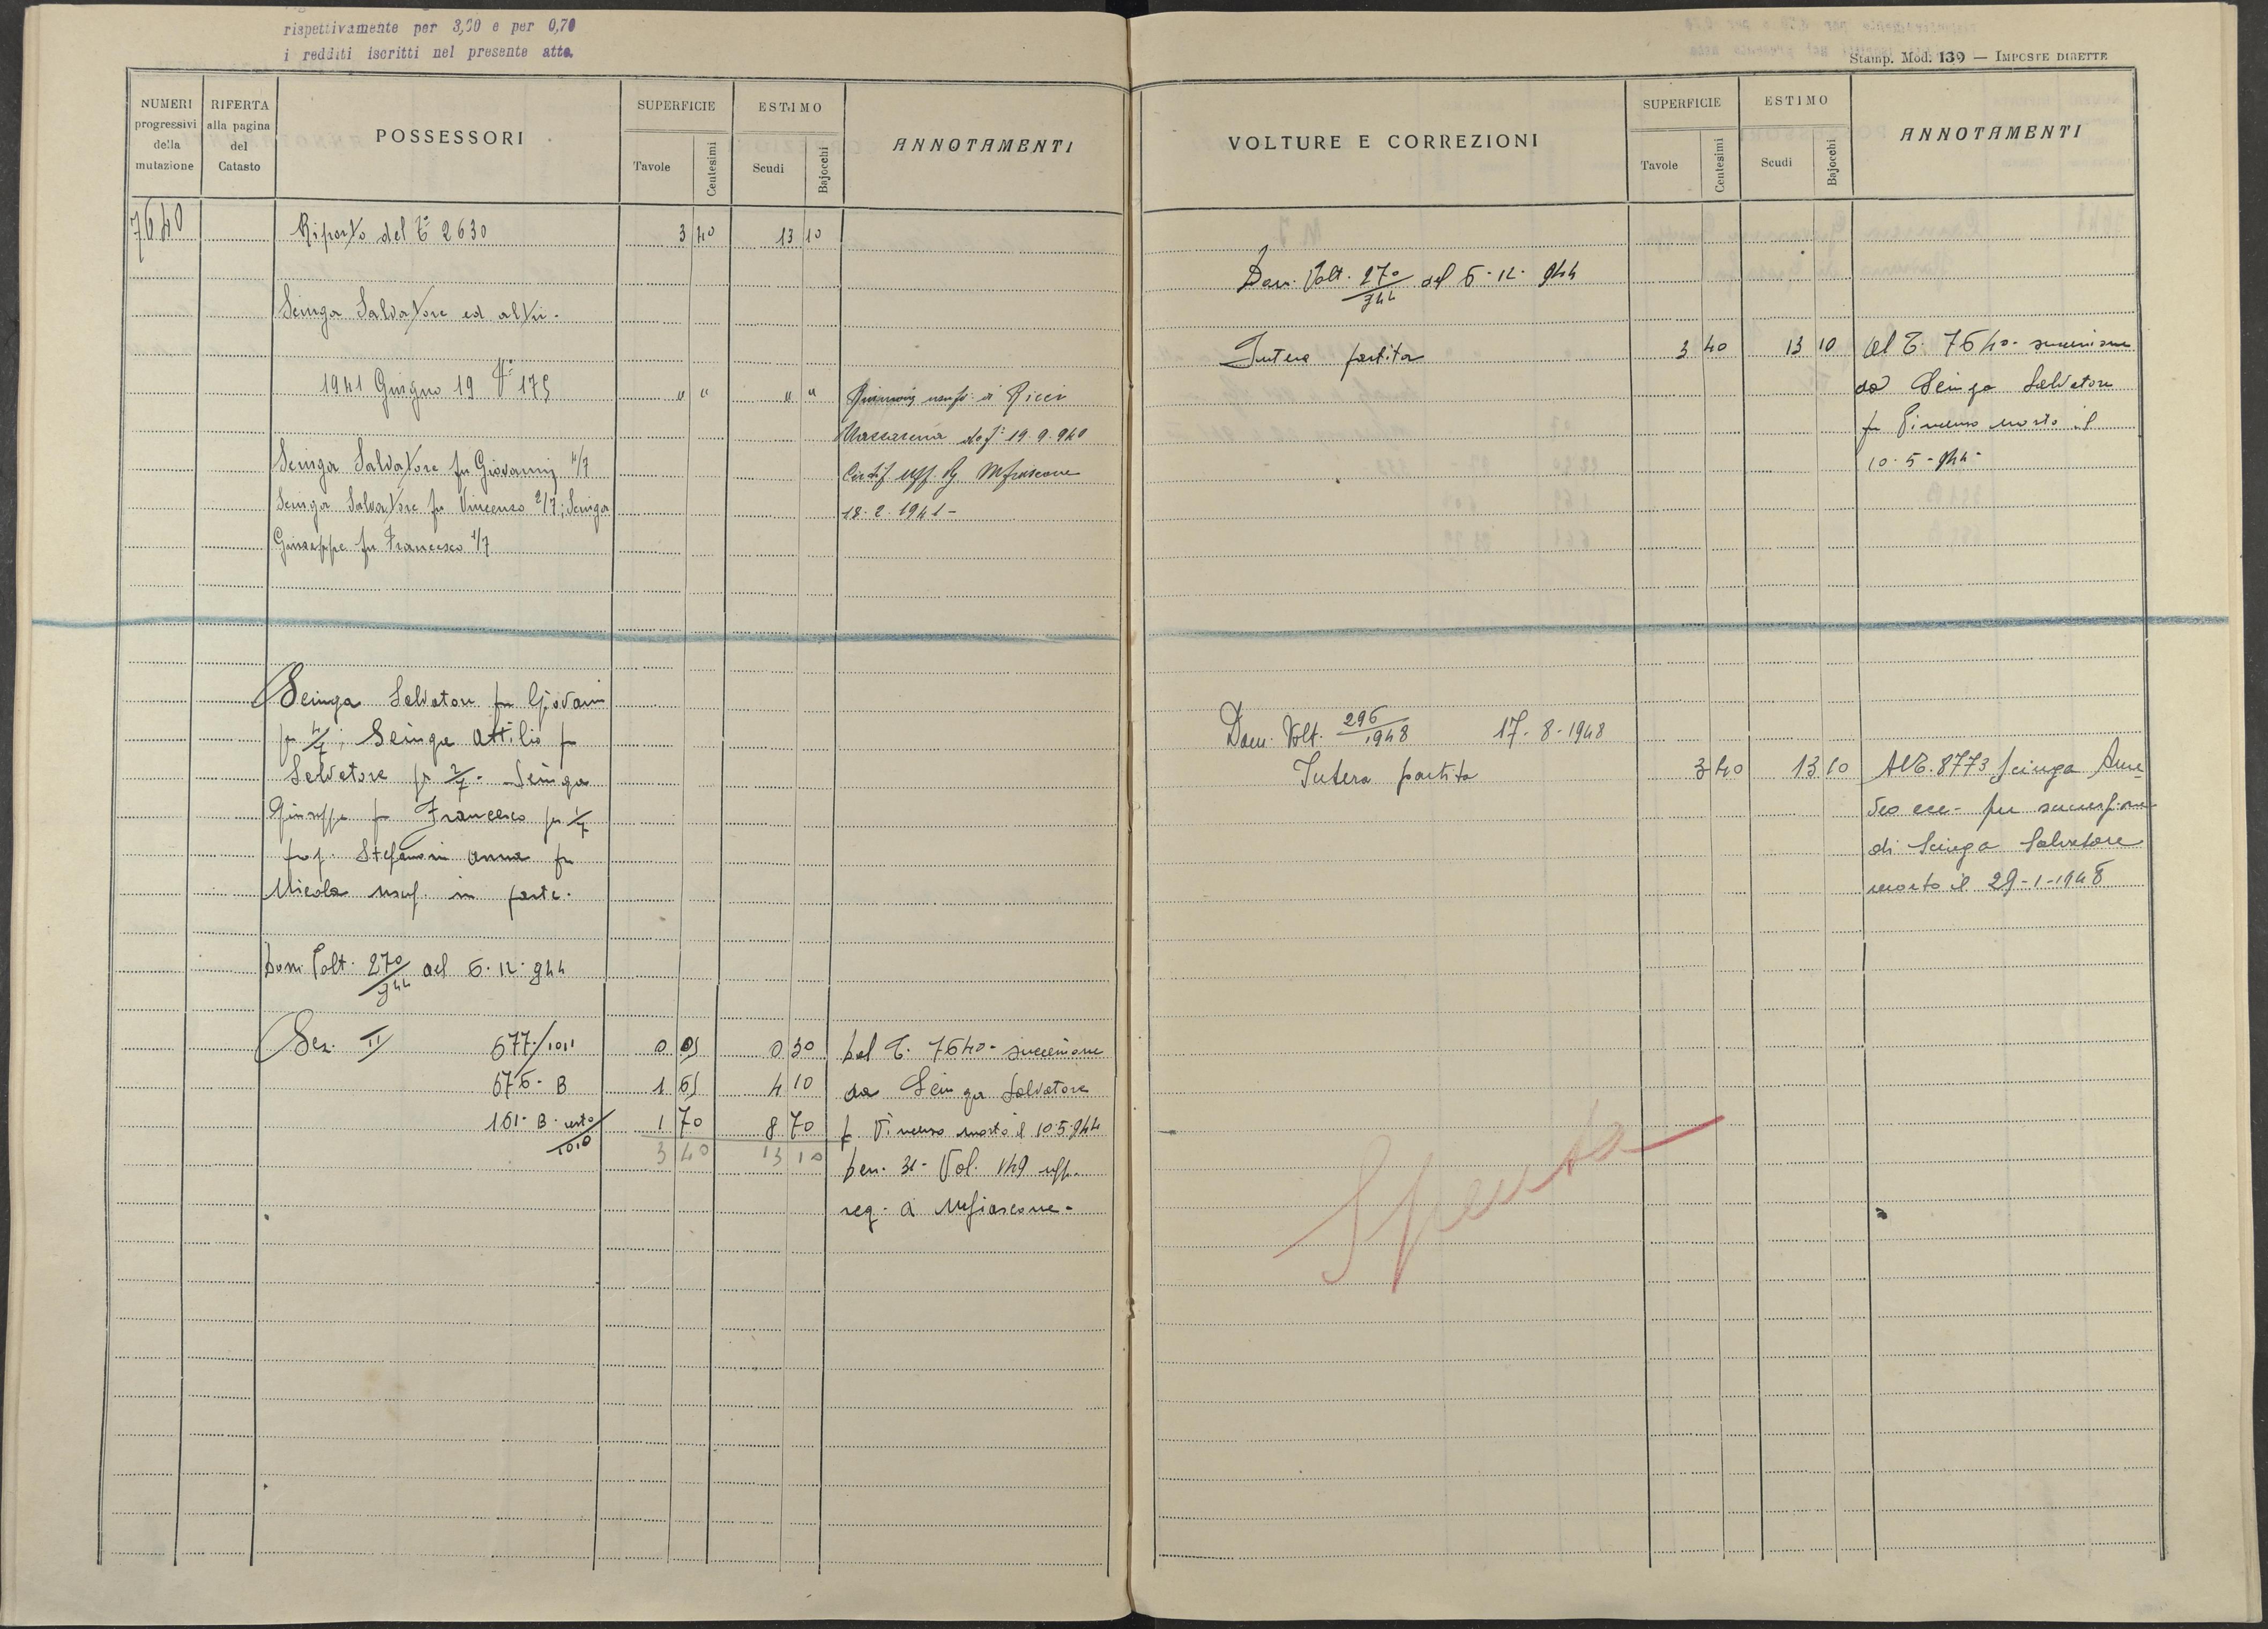 rispettivamente per 3,50 e per 0,70
i redditi iscritti nel presente atto.
NUMERI progressivi della mutazione
RIFERTA alla pagina del Catasto
POSSESSORI
SUPERFICIE
Tavole
Centesimi
ESTIMO
Scudi
Bajocchi
ANNOTAMENTI
7640
Riporto del T° 2630
3 40
13 10
Scinga Salvatore ed altri.
1941 Giugno 19 V° 175
" "
" "
usuf. di Ricci
19.9.940
Certif uff. Rg Mfiascone
18.2.1941-
Scinga Salvatore fu Giovanni 4/7
Scinga Salvatore fu Vincenzo 2/7; Scinga
Giuseppe fu Francesco 1/7
Scinga Salvatore fu Giovanni
pr 4/7; Scinga Attilio fu
Salvatore pr 2/7 - Scinga
Giuseppe fu Francesco pr 1/7
prop. Stefanoni Anna fu
Nicola usuf. in parte.
Dom. Volt. 270/944 del 6.12.944
Sez. II 677/1011
0 05
0 30
Dal T. 7640 - successione
676 - B
1 65
4 10
da Scinga Salvatore
161 - B - resto/1010
1 70
8 70
f Vincenzo morto il 10.5.944
3 40
13 10
den. 31 - Vol. 149 uff.
reg. di Mfiascone -
Stamp. Mod. 139 — IMPOSTE DIRETTE
VOLTURE E CORREZIONI
SUPERFICIE
Tavole
Centesimi
ESTIMO
Scudi
Bajocchi
ANNOTAMENTI
Dom. Volt. 270/944 del 6-12-944
Intera partita
3 40
13 10
Al T. 7640 - successione
da Scinga Salvatore
fu Vincenzo morto il
10-5-944-
Dom. Volt. 296/1948 17-8-1948
Intera partita
3 40
13 10
Al T. 8773 Scinga Ame
deo ecc - per successione
di Scinga Salvatore
morto il 29-1-1948
Spenta